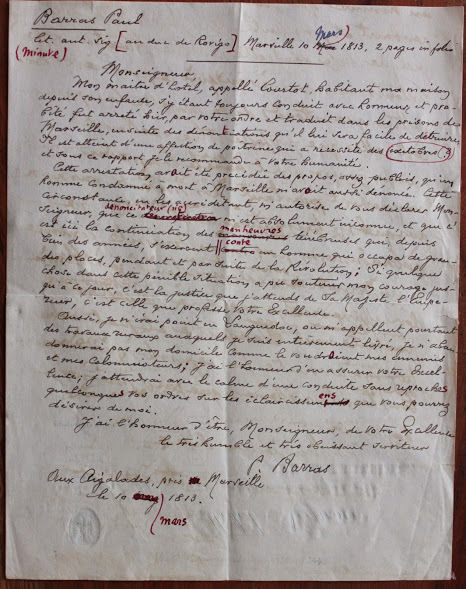 Barras Paul
Let. aut. sig [au duc de Rovigo] Marseille 10 Mars 1813, 2 pages in folio
(Minute)
Monseigneur
Mon maître d'hotel, appellé Courtot, habitant ma maison
depuis son enfance, s'y étant toujours conduit avec honneur et pro-
bité fut arreté hier, par votre ordre et traduit dans les prisons de
Marseille, ensuite des dénontiations qu'il lui sera facile de détruire,
Il est atteint d'une affection de poitrine qui a necessité des (?)
et sous ce rapport je le recommande à Votre humanité.
Cette arrestation, a été précédée des propos, assez publics, qu'un
homme Condamné a mort à Marseille m'avoit aussi denoncé. Cette
circonstance, en les accréditant, m'autorise de vous déclarer Mon-
Seigneur, que ce dénonciateur (sic) m'est absolument inconnu, et que c'
est ici la continuation des manœuvres ténébreuses que, depuis
bien des années, s'exercent contre un homme qui occupa de gran-
des places, pendant et par suite de la Révolution; Si quelque
chose dans cette pénible situation a pu soutenir mon courage jus-
qu'à ce jour, c'est la justice que j'attends de Sa Majesté l'Empe-
reur, c'est celle que professe Votre Excellence.
Aussi, je n'irai point en Languedoc, ou m'appellent pourtant
des travaux ruraux auxquels je suis entièrement livré, je n'aban-
donnerai pas mon domicile comme le voudroient mes ennemis
et mes Calomniateurs; j'ai l'honneur d'en assurer votre Excel-
lence; j'attendrai avec le calme d'une conduite sans reproches
quelconques vos ordres sur les éclaircissemens que vous pourrez
désirer de moi.
J'ai l'honneur d'être, Monseigneur, de Votre Excellence
le très humble et très obeissant serviteur
P. Barras
Aux Aigalades, près Marseille
le 10 mars 1813.